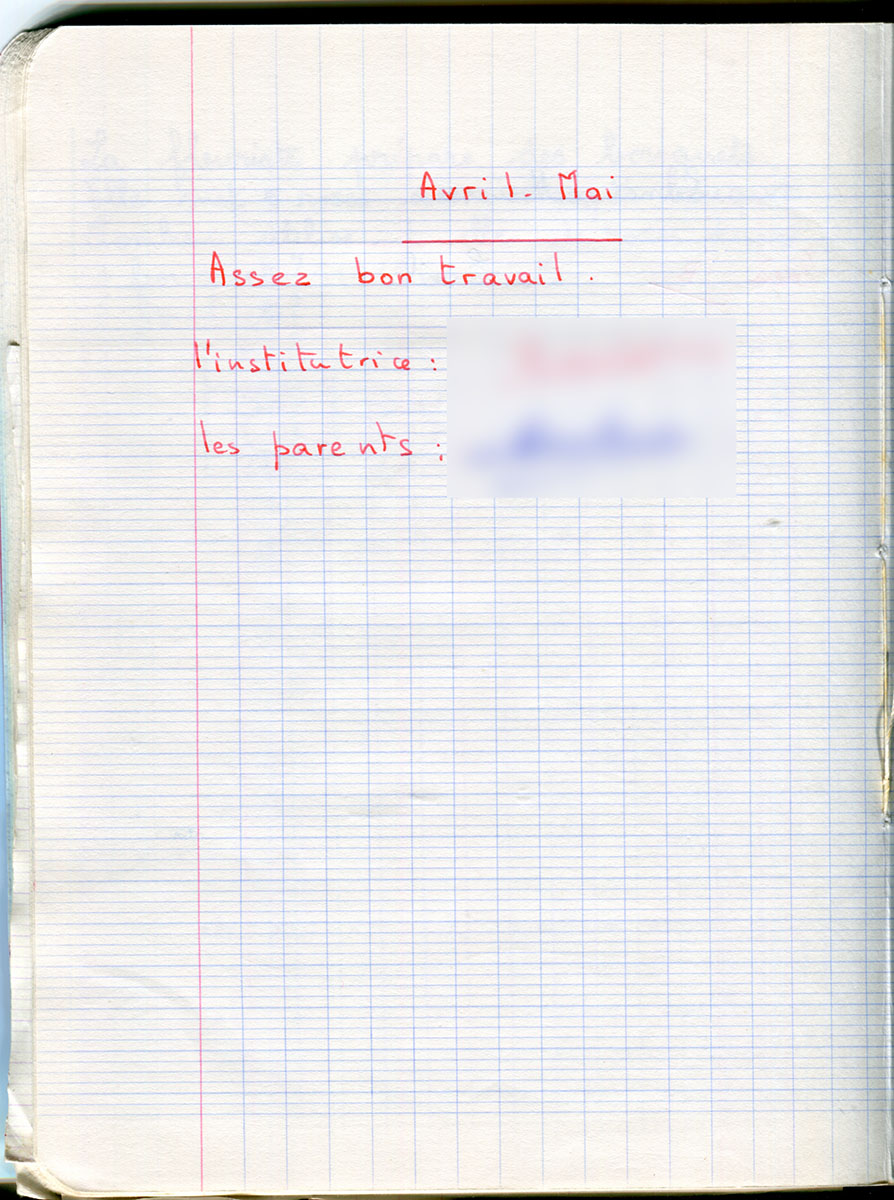 Avril - Mai
Assez bon travail.
l'institutrice :
les parents :